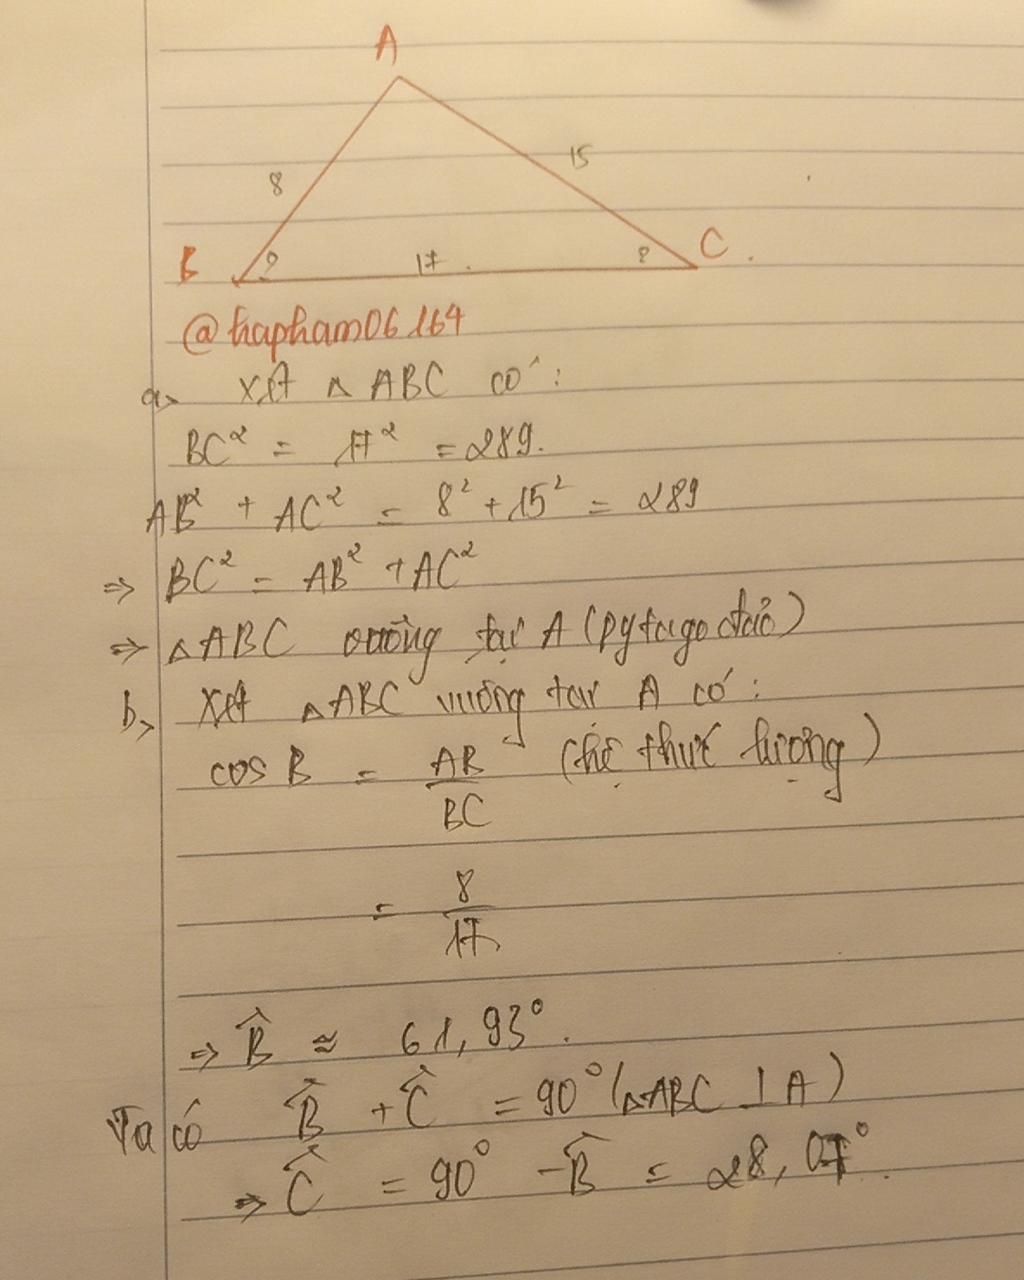 A
8
15
B
?
17
?
C
@hapham06164
a, Xét △ ABC có:
BC² = 17² = 289.
AB² + AC² = 8² + 15² = 289
⇒ BC² = AB² + AC²
⇒ △ABC vuông tại A (pytago đảo)
b, Xét △ABC vuông tại A có:
cos B = AB/BC (hệ thức lượng)
= 8/17
⇒ B̂ ≈ 61,93°.
Ta có B̂ + Ĉ = 90° (△ABC ⊥ A)
⇒ Ĉ = 90° - B̂ = 28,07°.